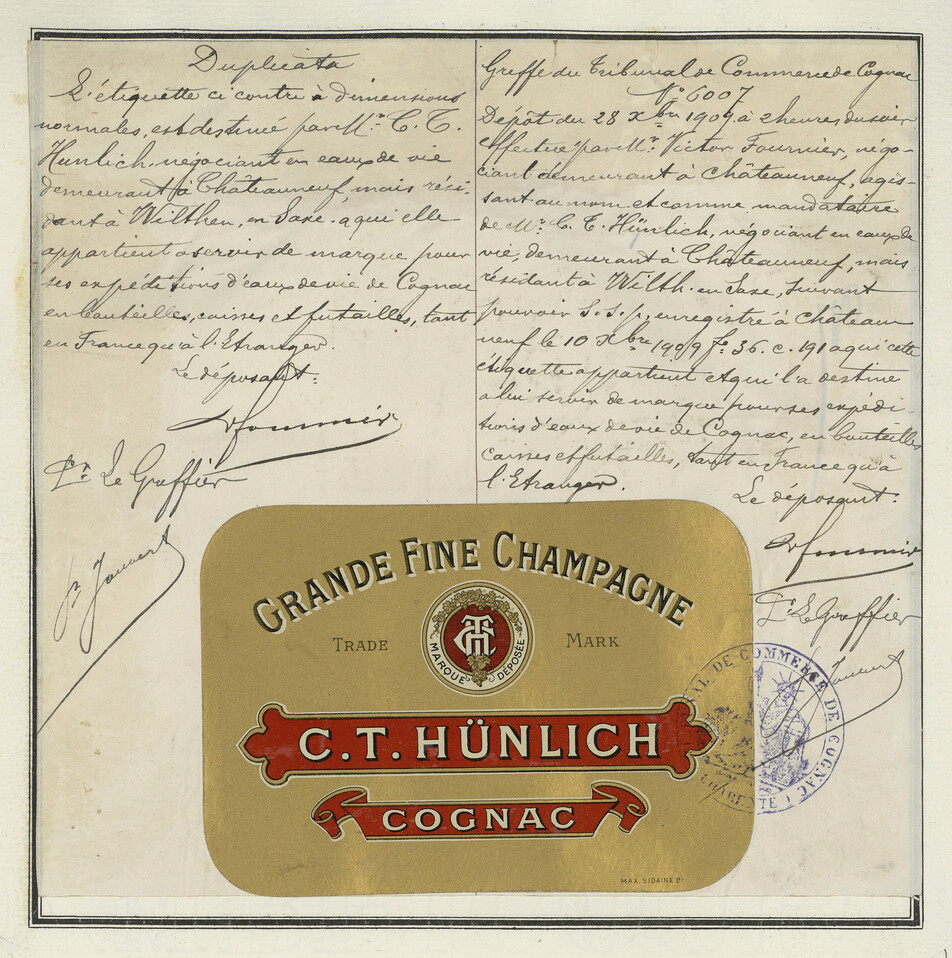 Duplicata
L'étiquette ci contre à dimensions
normales, est destinée par Mr. C. T.
Hünlich, négociant en eaux de vie
demeurant à Châteauneuf, mais rési-
dant à Wilthen, en Saxe, a qui elle
appartient a servir de marque pour
ses expéditions d'eaux de vie de Cognac
en bouteilles, caisses et futailles, tant
en France qu'à l'Etranger.
Le déposant:
VFournier
Pr. Le Greffier
Greffe du Tribunal de Commerce de Cognac
No 6007
Dépôt du 28 Xbre 1909 à 2 heures du soir
effectué par Mr. Victor Fournier, négo-
ciant demeurant à Châteauneuf, agis-
sant au nom et comme mandataire
de Mr. C. T. Hünlich, négociant en eaux de
vie, demeurant à Châteauneuf, mais
résidant à Wilth. en Saxe, suivant
pouvoir s.s.p. enregistré à Château
neuf le 10 Xbre 1909 fo 36. c. 191 a qui cette
étiquette appartient et qui l'a destine
a lui servir de marque pour ses expédi-
tions d'eaux de vie de Cognac, en bouteilles
caisses et futailles, tant en France qu'à
l'Etranger.
Le déposant:
VFournier
Pr. Le Greffier
GRANDE FINE CHAMPAGNE
TRADE MARK
MARQUE DÉPOSÉE
C.T. HÜNLICH
COGNAC
MAX. SIDAINE
DE COMMERCE DE COGNAC
CHARENTE